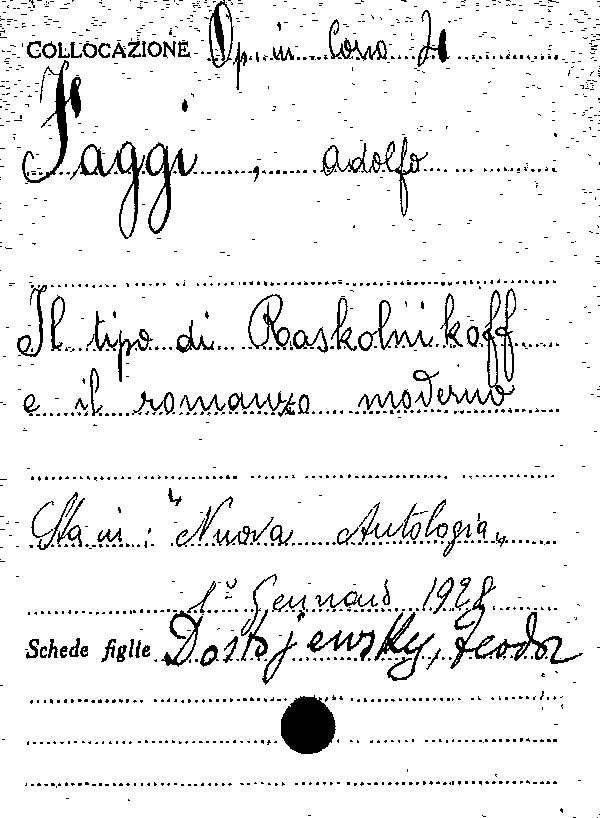 COLLOCAZIONE Op. in Coso 71
Faggi, Adolfo
Il tipo di Raskolnikoff
e il romanzo moderno
Sta in: "Nuova Antologia"
1º Gennaio 1928
Schede figlie Dostojewsky, Feodor